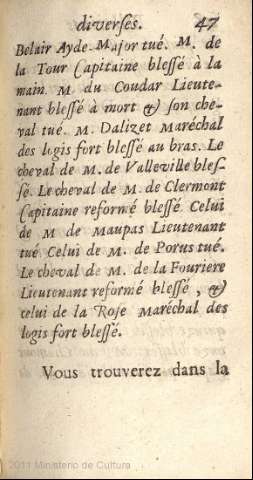 diverses. 47
Belair Ayde Major tué. M. de
la Tour Capitaine blessé à la
main. M du Coudar Lieute-
nant blessé à mort & son che-
val tué. M. Dalizet Maréchal
des logis fort blessé au bras. Le
cheval de M. de Valleville bles-
sé. Le cheval de M. de Clermont
Capitaine reformé blessé. Celui
de M de Maupas Lieutenant
tué. Celui de M. de Porus tué.
Le cheval de M. de la Fouriere
Lieutenant reformé blessé, &
celui de la Roje Maréchal des
logis fort blessé.
Vous trouverez dans la
2011 Ministerio de Cultura